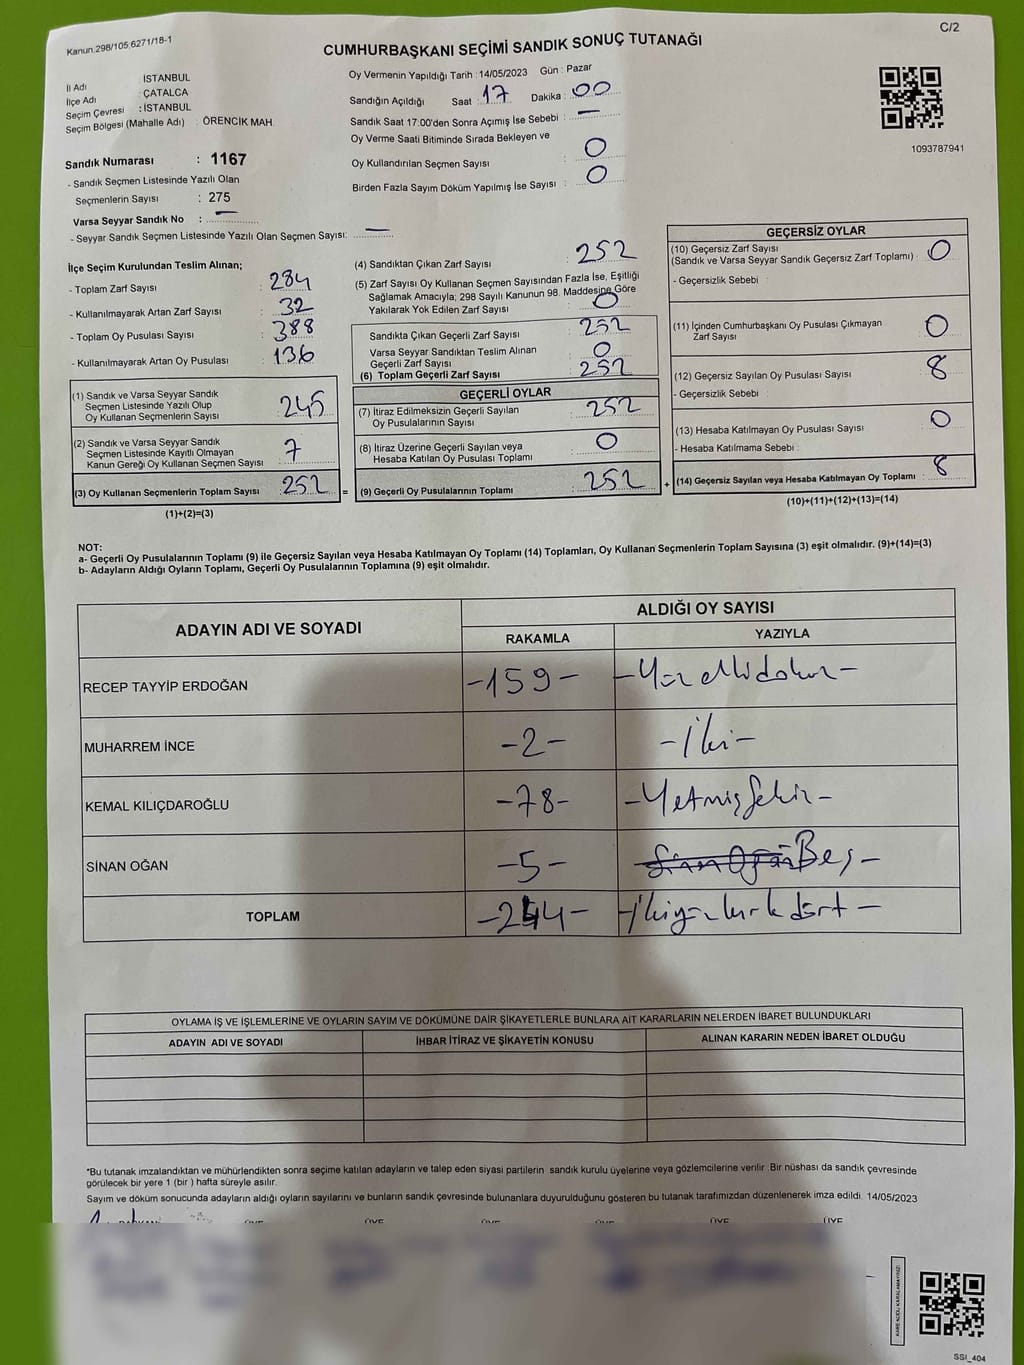 Kanun.298/105,6271/18-1
C/2
CUMHURBAŞKANI SEÇİMİ SANDIK SONUÇ TUTANAĞI
İl Adı İSTANBUL
İlçe Adı : ÇATALCA
Seçim Çevresi : İSTANBUL
Seçim Bölgesi (Mahalle Adı) : ÖRENCİK MAH.
Sandık Numarası : 1167
- Sandık Seçmen Listesinde Yazılı Olan
Seçmenlerin Sayısı : 275
Varsa Seyyar Sandık No : —
- Seyyar Sandık Seçmen Listesinde Yazılı Olan Seçmen Sayısı: —
Oy Vermenin Yapıldığı Tarih : 14/05/2023 Gün : Pazar
Sandığın Açıldığı Saat : 17 Dakika : 00
Sandık Saat 17:00'den Sonra Açımış İse Sebebi : —
Oy Verme Saati Bitiminde Sırada Bekleyen ve
Oy Kullandırılan Seçmen Sayısı : 0
Birden Fazla Sayım Döküm Yapılmış İse Sayısı : 0
1093787941
İlçe Seçim Kurulundan Teslim Alınan;
- Toplam Zarf Sayısı : 284
- Kullanılmayarak Artan Zarf Sayısı : 32
- Toplam Oy Pusulası Sayısı : 388
- Kullanılmayarak Artan Oy Pusulası : 136
(1) Sandık ve Varsa Seyyar Sandık
Seçmen Listesinde Yazılı Olup
Oy Kullanan Seçmenlerin Sayısı : 245
(2) Sandık ve Varsa Seyyar Sandık
Seçmen Listesinde Kayıtlı Olmayan
Kanun Gereği Oy Kullanan Seçmen Sayısı : 7
(3) Oy Kullanan Seçmenlerin Toplam Sayısı : 252 =
(1)+(2)=(3)
(4) Sandıktan Çıkan Zarf Sayısı : 252
(5) Zarf Sayısı Oy Kullanan Seçmen Sayısından Fazla İse, Eşitliği
Sağlamak Amacıyla; 298 Sayılı Kanunun 98. Maddesine Göre
Yakılarak Yok Edilen Zarf Sayısı : 0
Sandıkta Çıkan Geçerli Zarf Sayısı : 252
Varsa Seyyar Sandıktan Teslim Alınan
Geçerli Zarf Sayısı : 0
(6) Toplam Geçerli Zarf Sayısı : 252
GEÇERLİ OYLAR
(7) İtiraz Edilmeksizin Geçerli Sayılan
Oy Pusulalarının Sayısı : 252
(8) İtiraz Üzerine Geçerli Sayılan veya
Hesaba Katılan Oy Pusulası Toplamı : 0
(9) Geçerli Oy Pusulalarının Toplamı : 252 +
GEÇERSİZ OYLAR
(10) Geçersiz Zarf Sayısı
(Sandık ve Varsa Seyyar Sandık Geçersiz Zarf Toplamı) : 0
- Geçersizlik Sebebi :
(11) İçinden Cumhurbaşkanı Oy Pusulası Çıkmayan
Zarf Sayısı : 0
(12) Geçersiz Sayılan Oy Pusulası Sayısı : 8
- Geçersizlik Sebebi :
(13) Hesaba Katılmayan Oy Pusulası Sayısı : 0
- Hesaba Katılmama Sebebi :
(14) Geçersiz Sayılan veya Hesaba Katılmayan Oy Toplamı : 8
(10)+(11)+(12)+(13)=(14)
NOT:
a- Geçerli Oy Pusulalarının Toplamı (9) ile Geçersiz Sayılan veya Hesaba Katılmayan Oy Toplamı (14) Toplamları, Oy Kullanan Seçmenlerin Toplam Sayısına (3) eşit olmalıdır. (9)+(14)=(3)
b- Adayların Aldığı Oyların Toplamı, Geçerli Oy Pusulalarının Toplamına (9) eşit olmalıdır.
ADAYIN ADI VE SOYADI ALDIĞI OY SAYISI
RAKAMLA YAZIYLA
RECEP TAYYİP ERDOĞAN -159- -Yüz elli dokuz-
MUHARREM İNCE -2- -İki-
KEMAL KILIÇDAROĞLU -78- -Yetmiş sekiz-
SİNAN OĞAN -5- Sinan Oğan Beş-
TOPLAM -244- -İkiyüz kırk dört-
OYLAMA İŞ VE İŞLEMLERİNE VE OYLARIN SAYIM VE DÖKÜMÜNE DAİR ŞİKAYETLERLE BUNLARA AİT KARARLARIN NELERDEN İBARET BULUNDUKLARI
ADAYIN ADI VE SOYADI İHBAR İTİRAZ VE ŞİKAYETİN KONUSU ALINAN KARARIN NEDEN İBARET OLDUĞU
*Bu tutanak imzalandıktan ve mühürlendikten sonra seçime katılan adayların ve talep eden siyasi partilerin sandık kurulu üyelerine veya gözlemcilerine verilir. Bir nüshası da sandık çevresinde
görülecek bir yere 1 (bir ) hafta süreyle asılır.
Sayım ve döküm sonucunda adayların aldığı oyların sayılarını ve bunların sandık çevresinde bulunanlara duyurulduğunu gösteren bu tutanak tarafımızdan düzenlenerek imza edildi. 14/05/2023
ÜYE ÜYE ÜYE ÜYE ÜYE ÜYE
KARE KODU KARALAMAYINIZ!
SSI_404